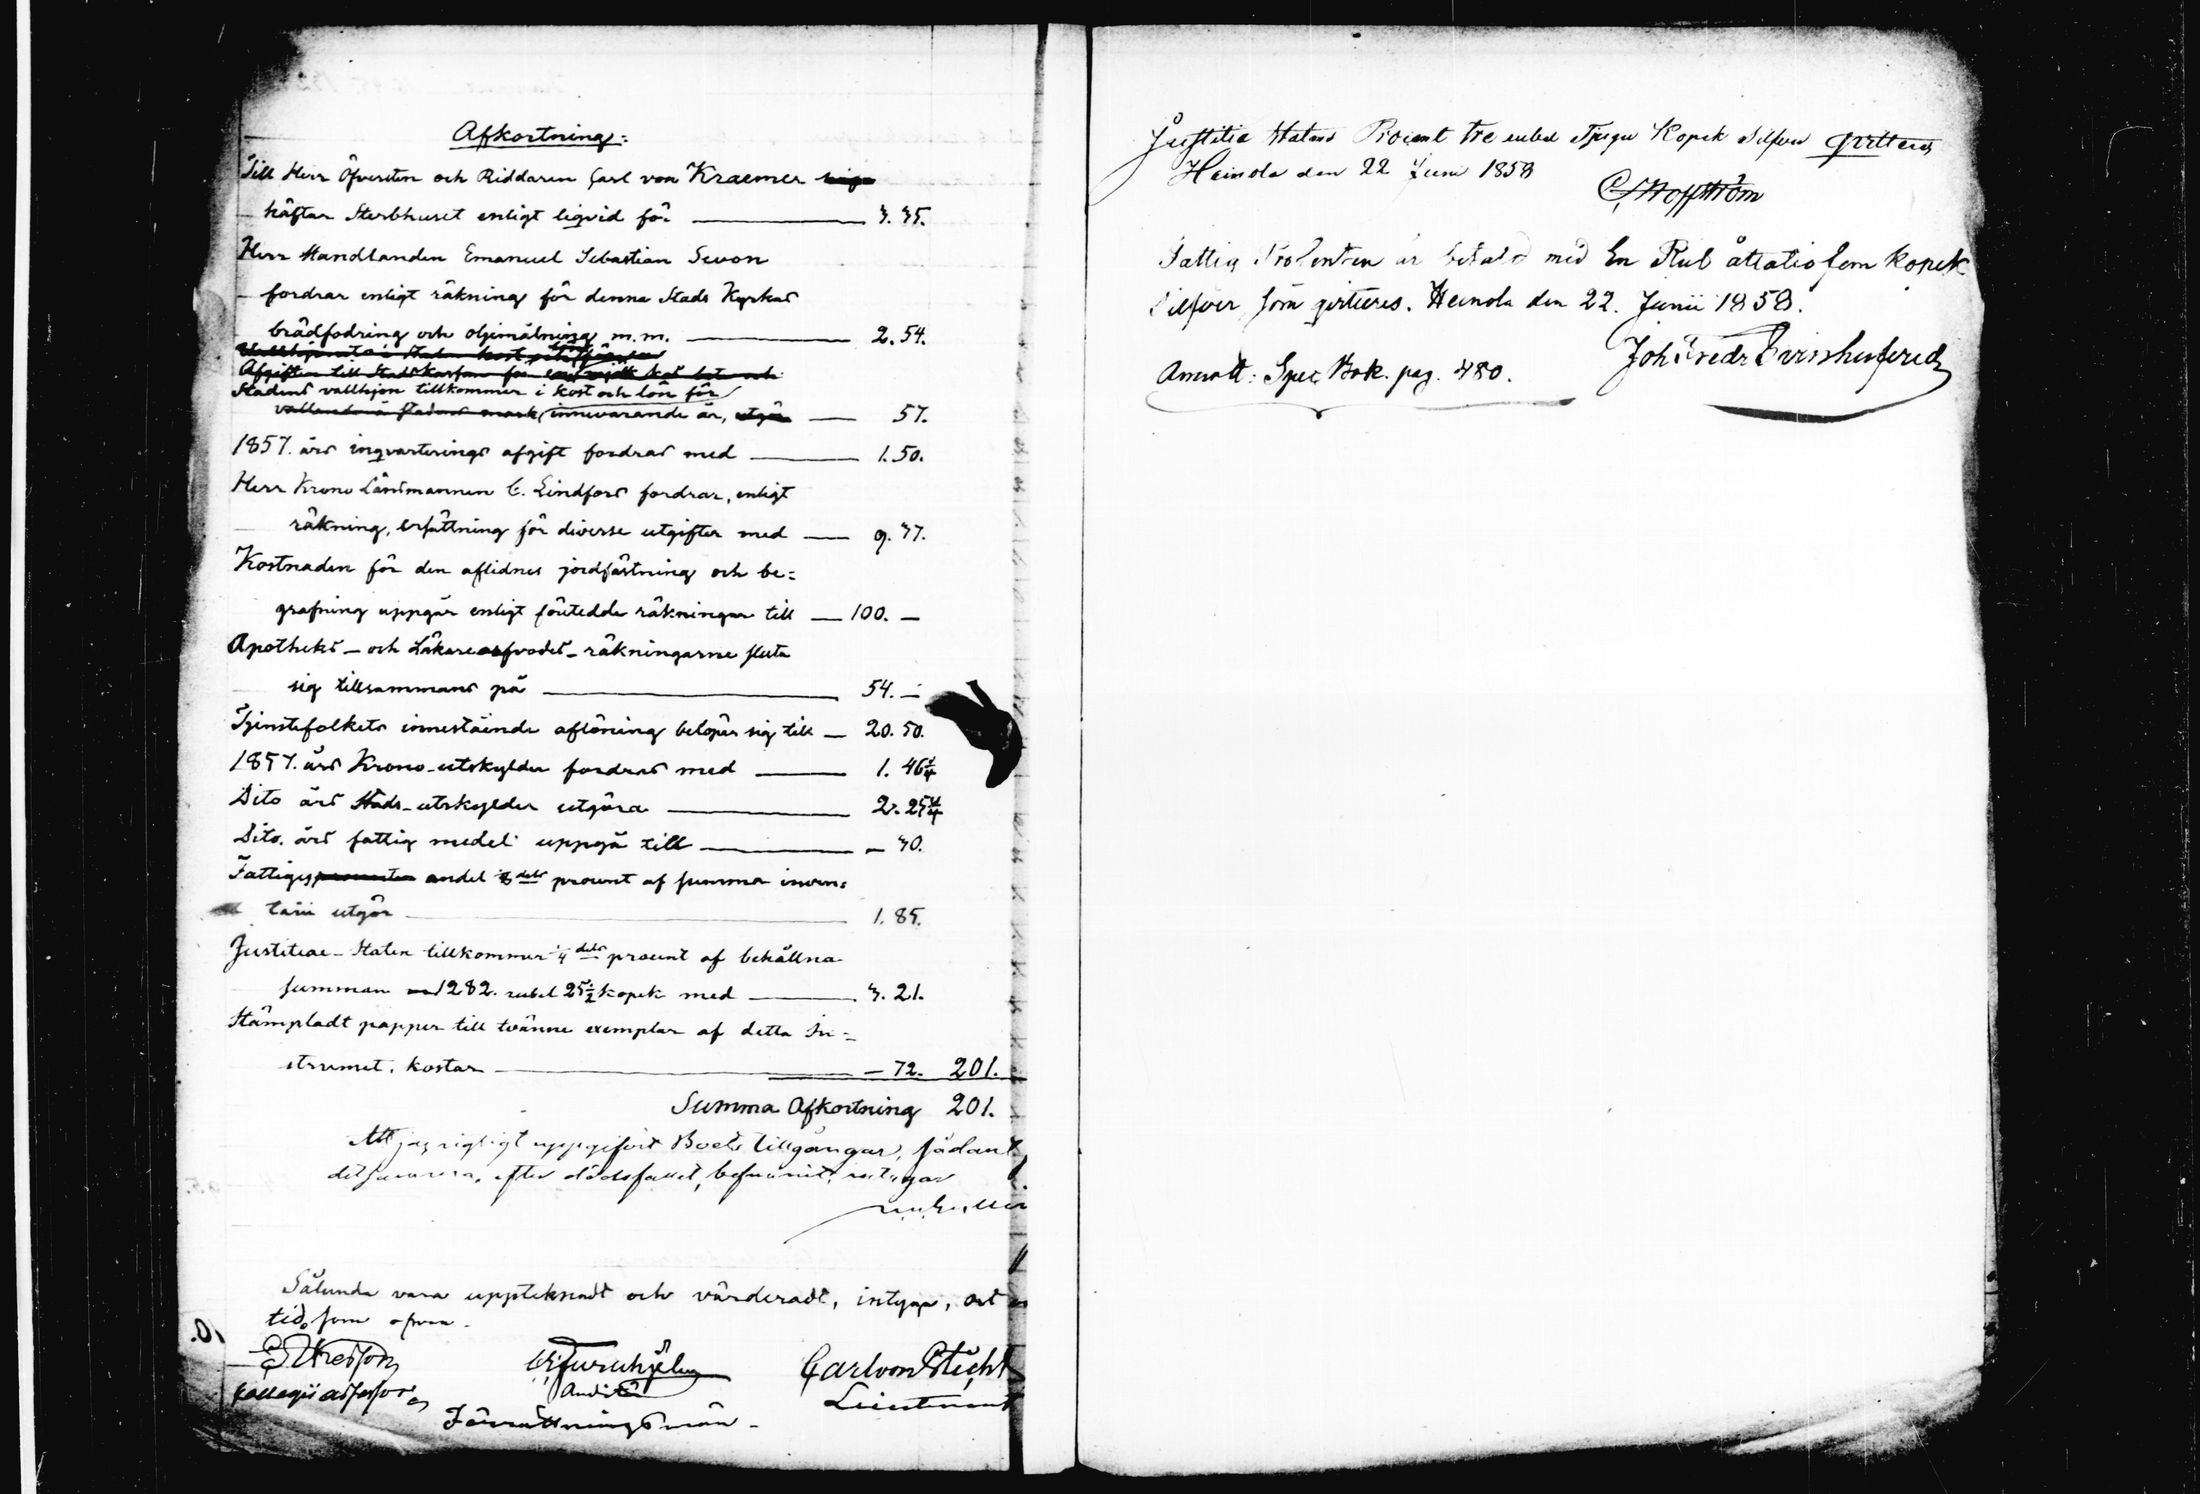 Afkortning:
Till Herr Öfversten och Riddaren Carl von Kraemer
häftar Sterbhuset enligt liqvid för 3. 35.
Herr Handlanden Emanuel Sebastian Sevon
fordrar enligt räkning för denna Stads Kyrkas
brädfodring och oljemålning m. m. 2. 54.
Afgiften till Stadskassan för
Stadens vallhjon tillkommer i kost och lön för
innevarande år, 57.
1857. års inqvarterings afgift fordras med 1. 50.
Herr Krono Länsmannen C. Lindfors fordrar, enligt
räkning, ersättning för diverse utgifter med 9. 37.
Kostnaden för den aflidnes jordfästning och be=
grafning uppgår enligt företedda räkningar till 100. —
Apotheks- och Läkarearfvodes-räkningarne sluta
sig tillsammans på 54. —
Tjenstefolkets innestående aflöning belöper sig till 20. 50.
1857. års Krono-utskylder fordras med 1. 46¼
Dito års Stads-utskylder utgöra 2. 25¾
Dito. års fattig medel uppgå till — 30.
Fattiges andel 8 dels procent af summa inven=
tarii utgör 1. 85.
Justitiae-Staten tillkommer ¼ dels procent af behållna
summan 1282. rubel 25½ kopek med 3. 21.
Stämpladt papper till tvänne exemplar af detta In=
strumet, kostar — 72. 201.
Summa Afkortning 201.
Att jag rigtigt uppgifvit Boets tillgångar, sådant
det efter dödsfallet, befunnit, intygar
Sålunda vara uppteknadt och värderadt, intyga, ort
tid, som ofvan.
Collegii assessor
C. Furuhjelm
Auditör
Carl von Plicht
Lieutenant
Förrättningsmän.
Justitiæ Statens Procent tre rubel tjugu Kopek Silfver qvitteras
Heinola den 22 Juni 1858
Fattig Procenten är betald med En Rub åttatio fem kopek
Silfver, som qvitteras. Heinola den 22. Junii 1858.
Joh Fredr
Anmält: Spec Bok. pag. 480.